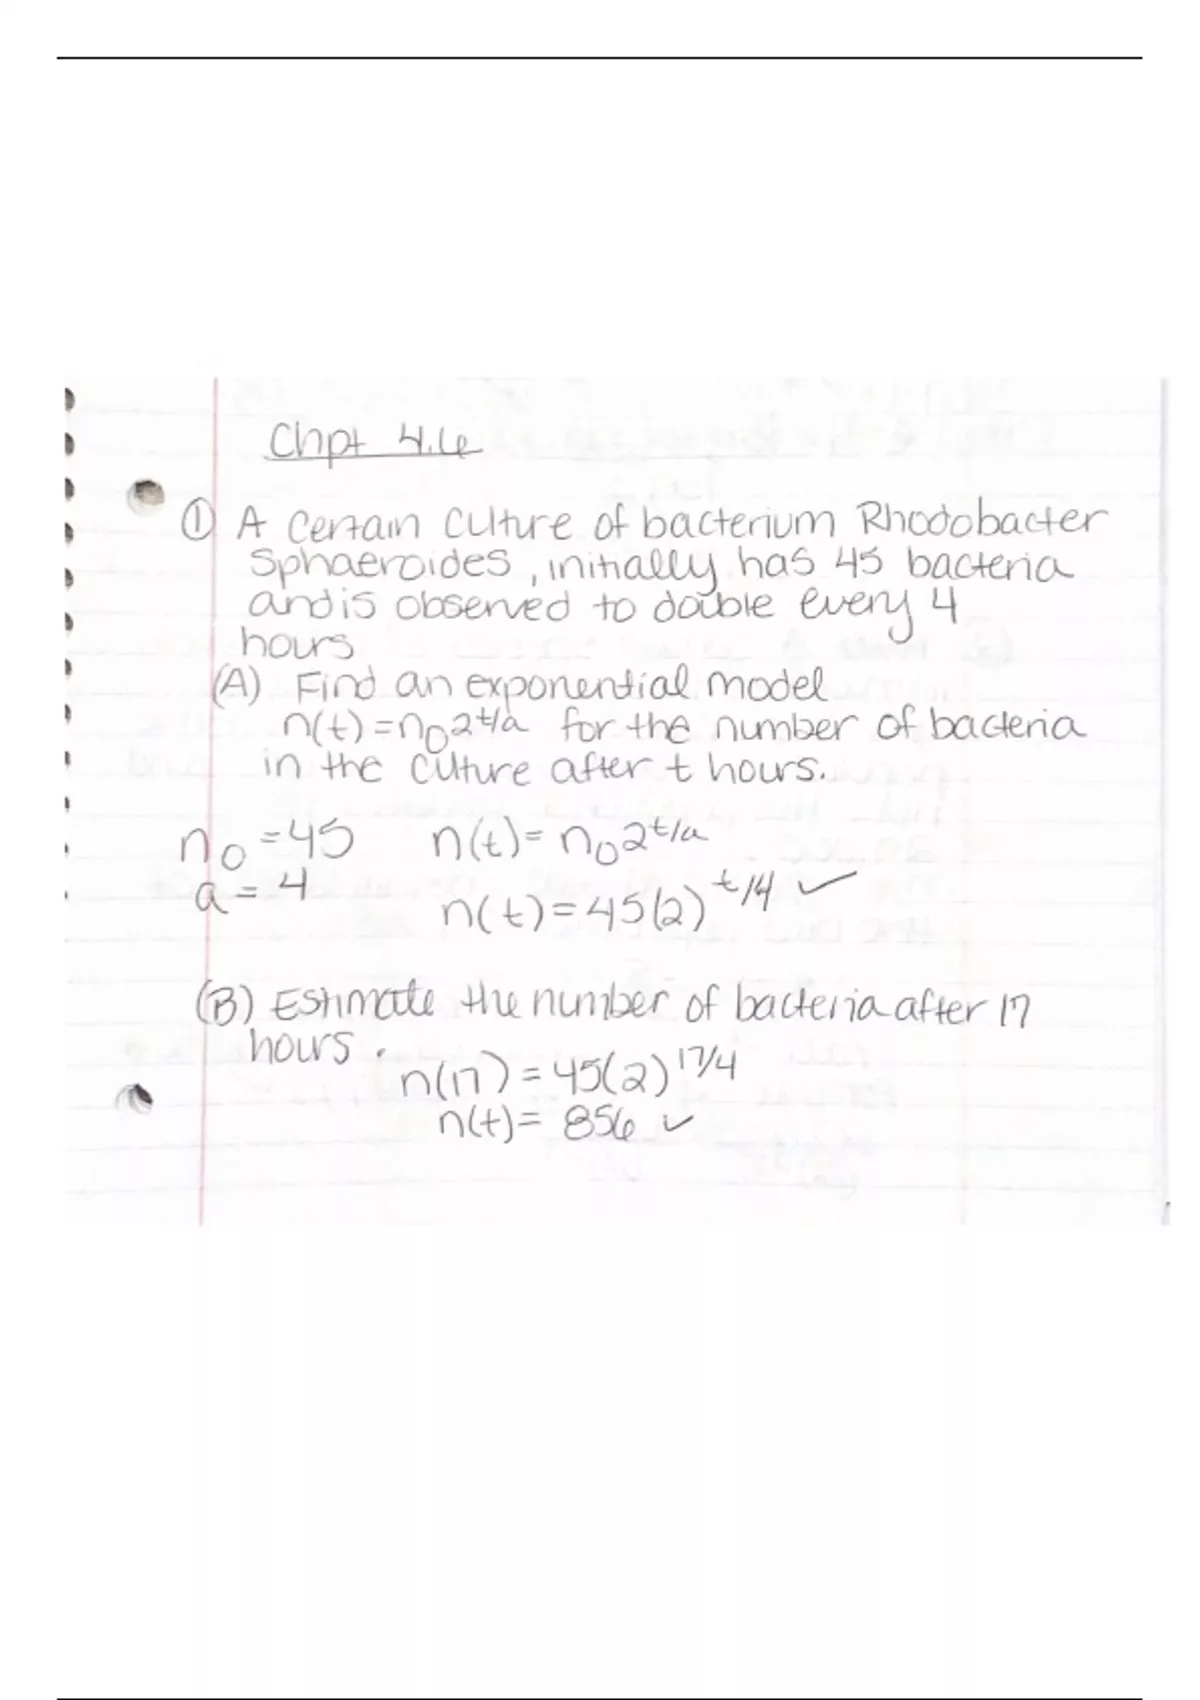 Chpt 4.6
① A Certain Culture of bacterium Rhodobacter
Sphaeroides, initially has 45 bacteria
and is observed to double every 4
hours
(A) Find an exponential model
n(t) = n₀2^t/a for the number of bacteria
in the Culture after t hours.
n₀ = 45 n(t) = n₀2^t/a
a = 4 n(t) = 45(2)^t/4 ✓
(B) Estimate the number of bacteria after 17
hours.
n(17) = 45(2)^17/4
n(t) = 856 ✓